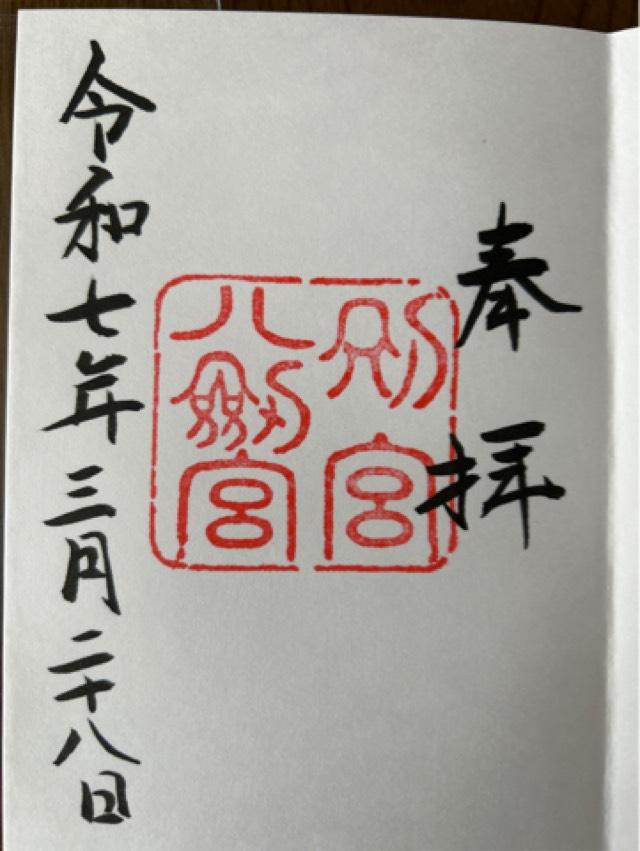 奉拝
別宮
八剱宮
令和七年三月二十八日